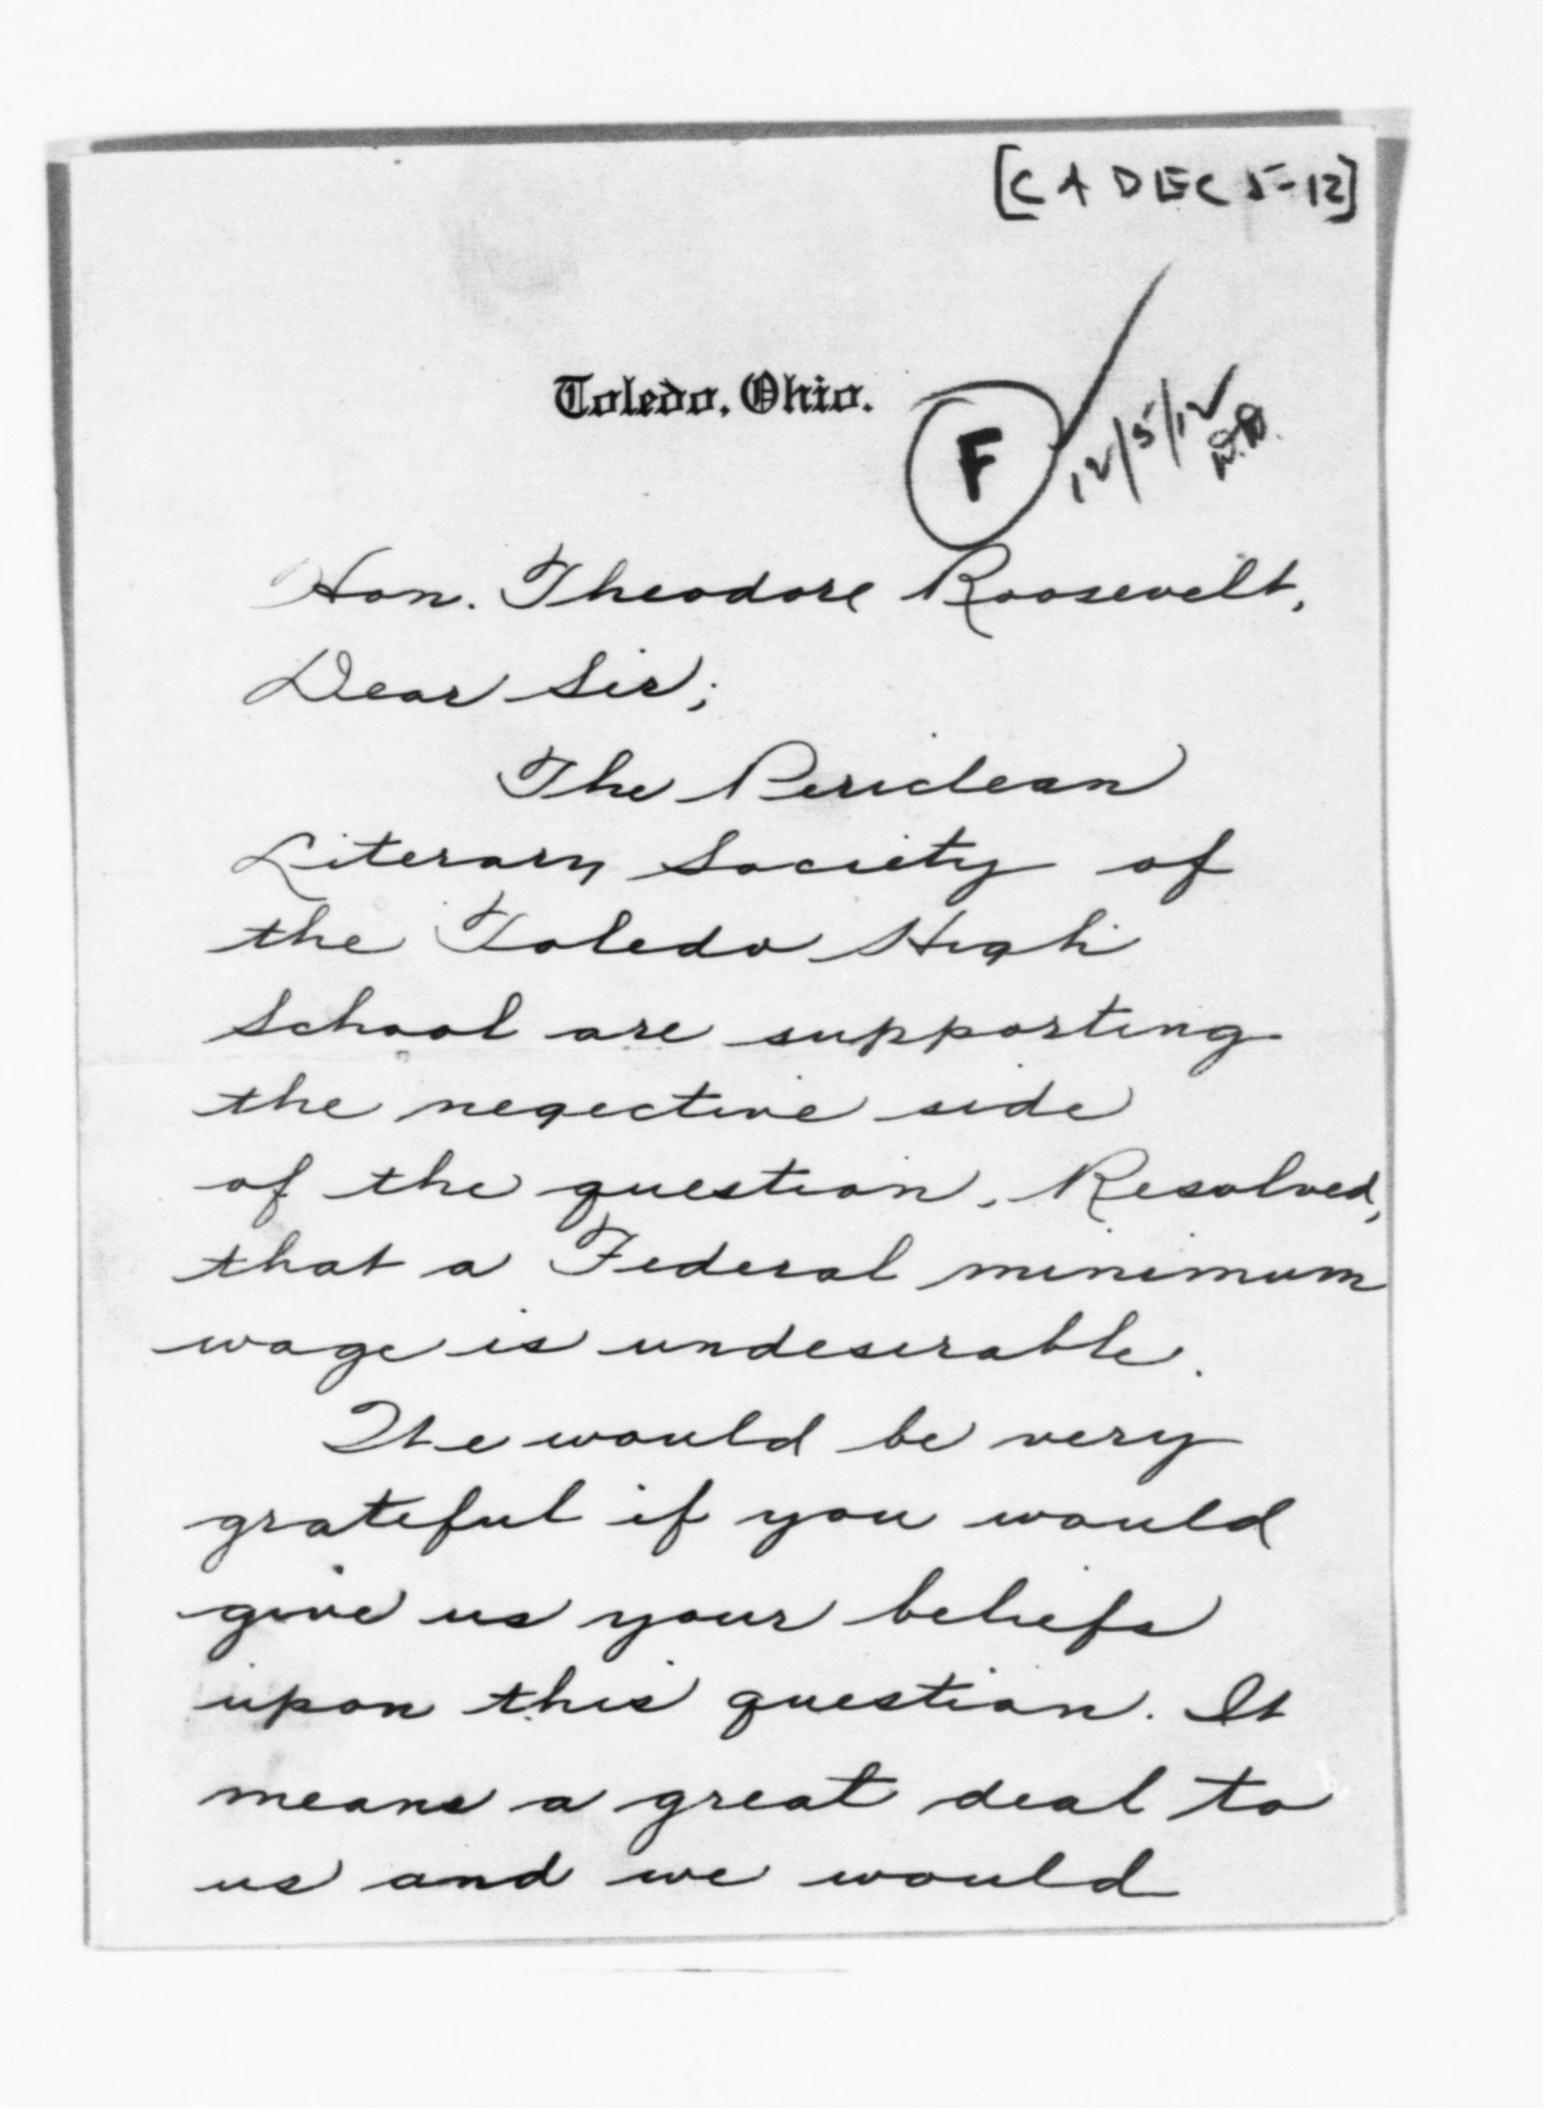 [CA DEC 5-12]
Toledo, Ohio.
F
12/5/12
Hon. Theodore Roosevelt,
Dear Sir;
The Periclean
Literary Society of
the Toledo High
School are supporting
the negective side
of the question, Resolved,
that a Federal minimum
wage is undesirable.
We would be very
grateful if you would
give us your beliefs
upon this question. It
means a great deal to
us and we would